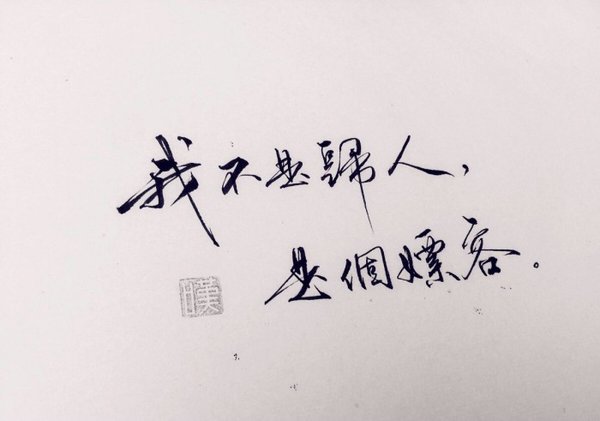 我不是歸人，
是個嫖客。